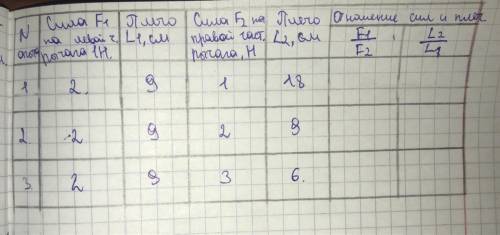 N опыт | Сила F1 на левой ч. рычага 1H. | Плечо L1, см | Сила F2 на правой част. рычага, Н | Плечо L2, см | Отношение сил и плеч F1/F2 , L2/L1
1 | 2. | 9 | 1 | 18
2 | 2 | 9 | 2 | 9
3. | 2 | 9 | 3 | 6.